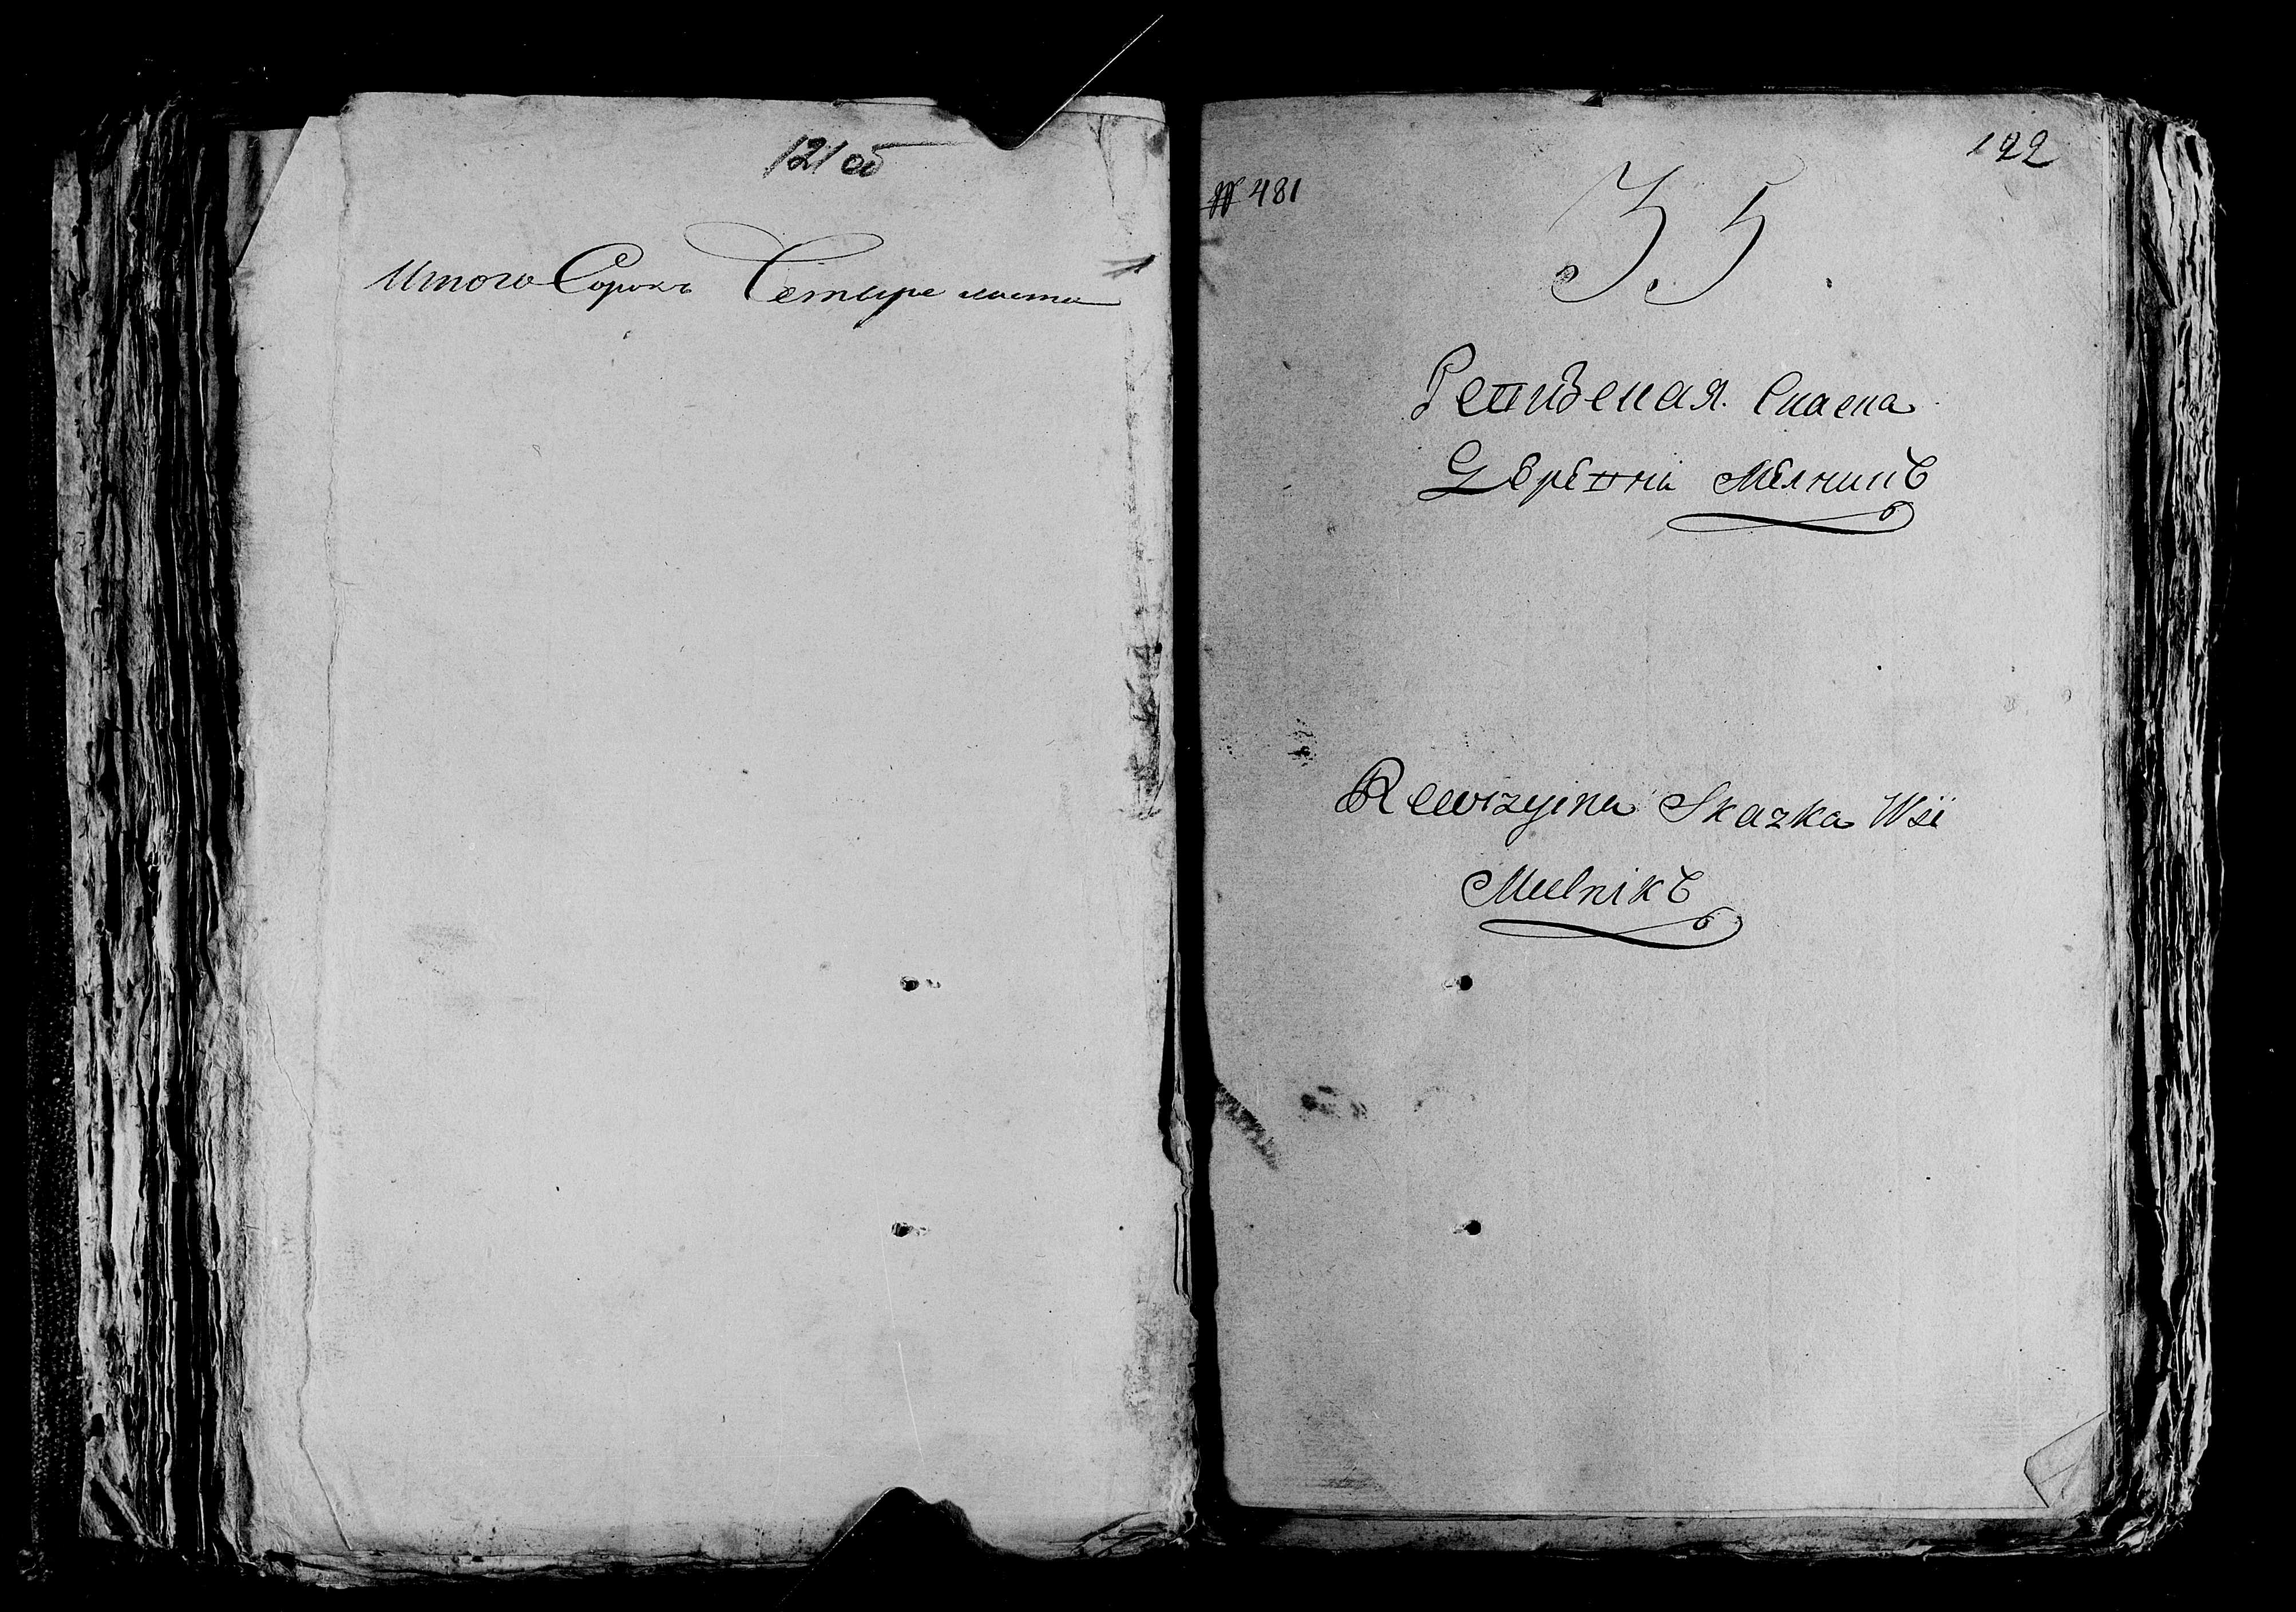 121 об
Итого Сорокъ Четыре листа
122
№ 481
35
Ревизская Сказка
Деревни Мелникъ
Rewizyina Skazka Wsi
Mielnikъ